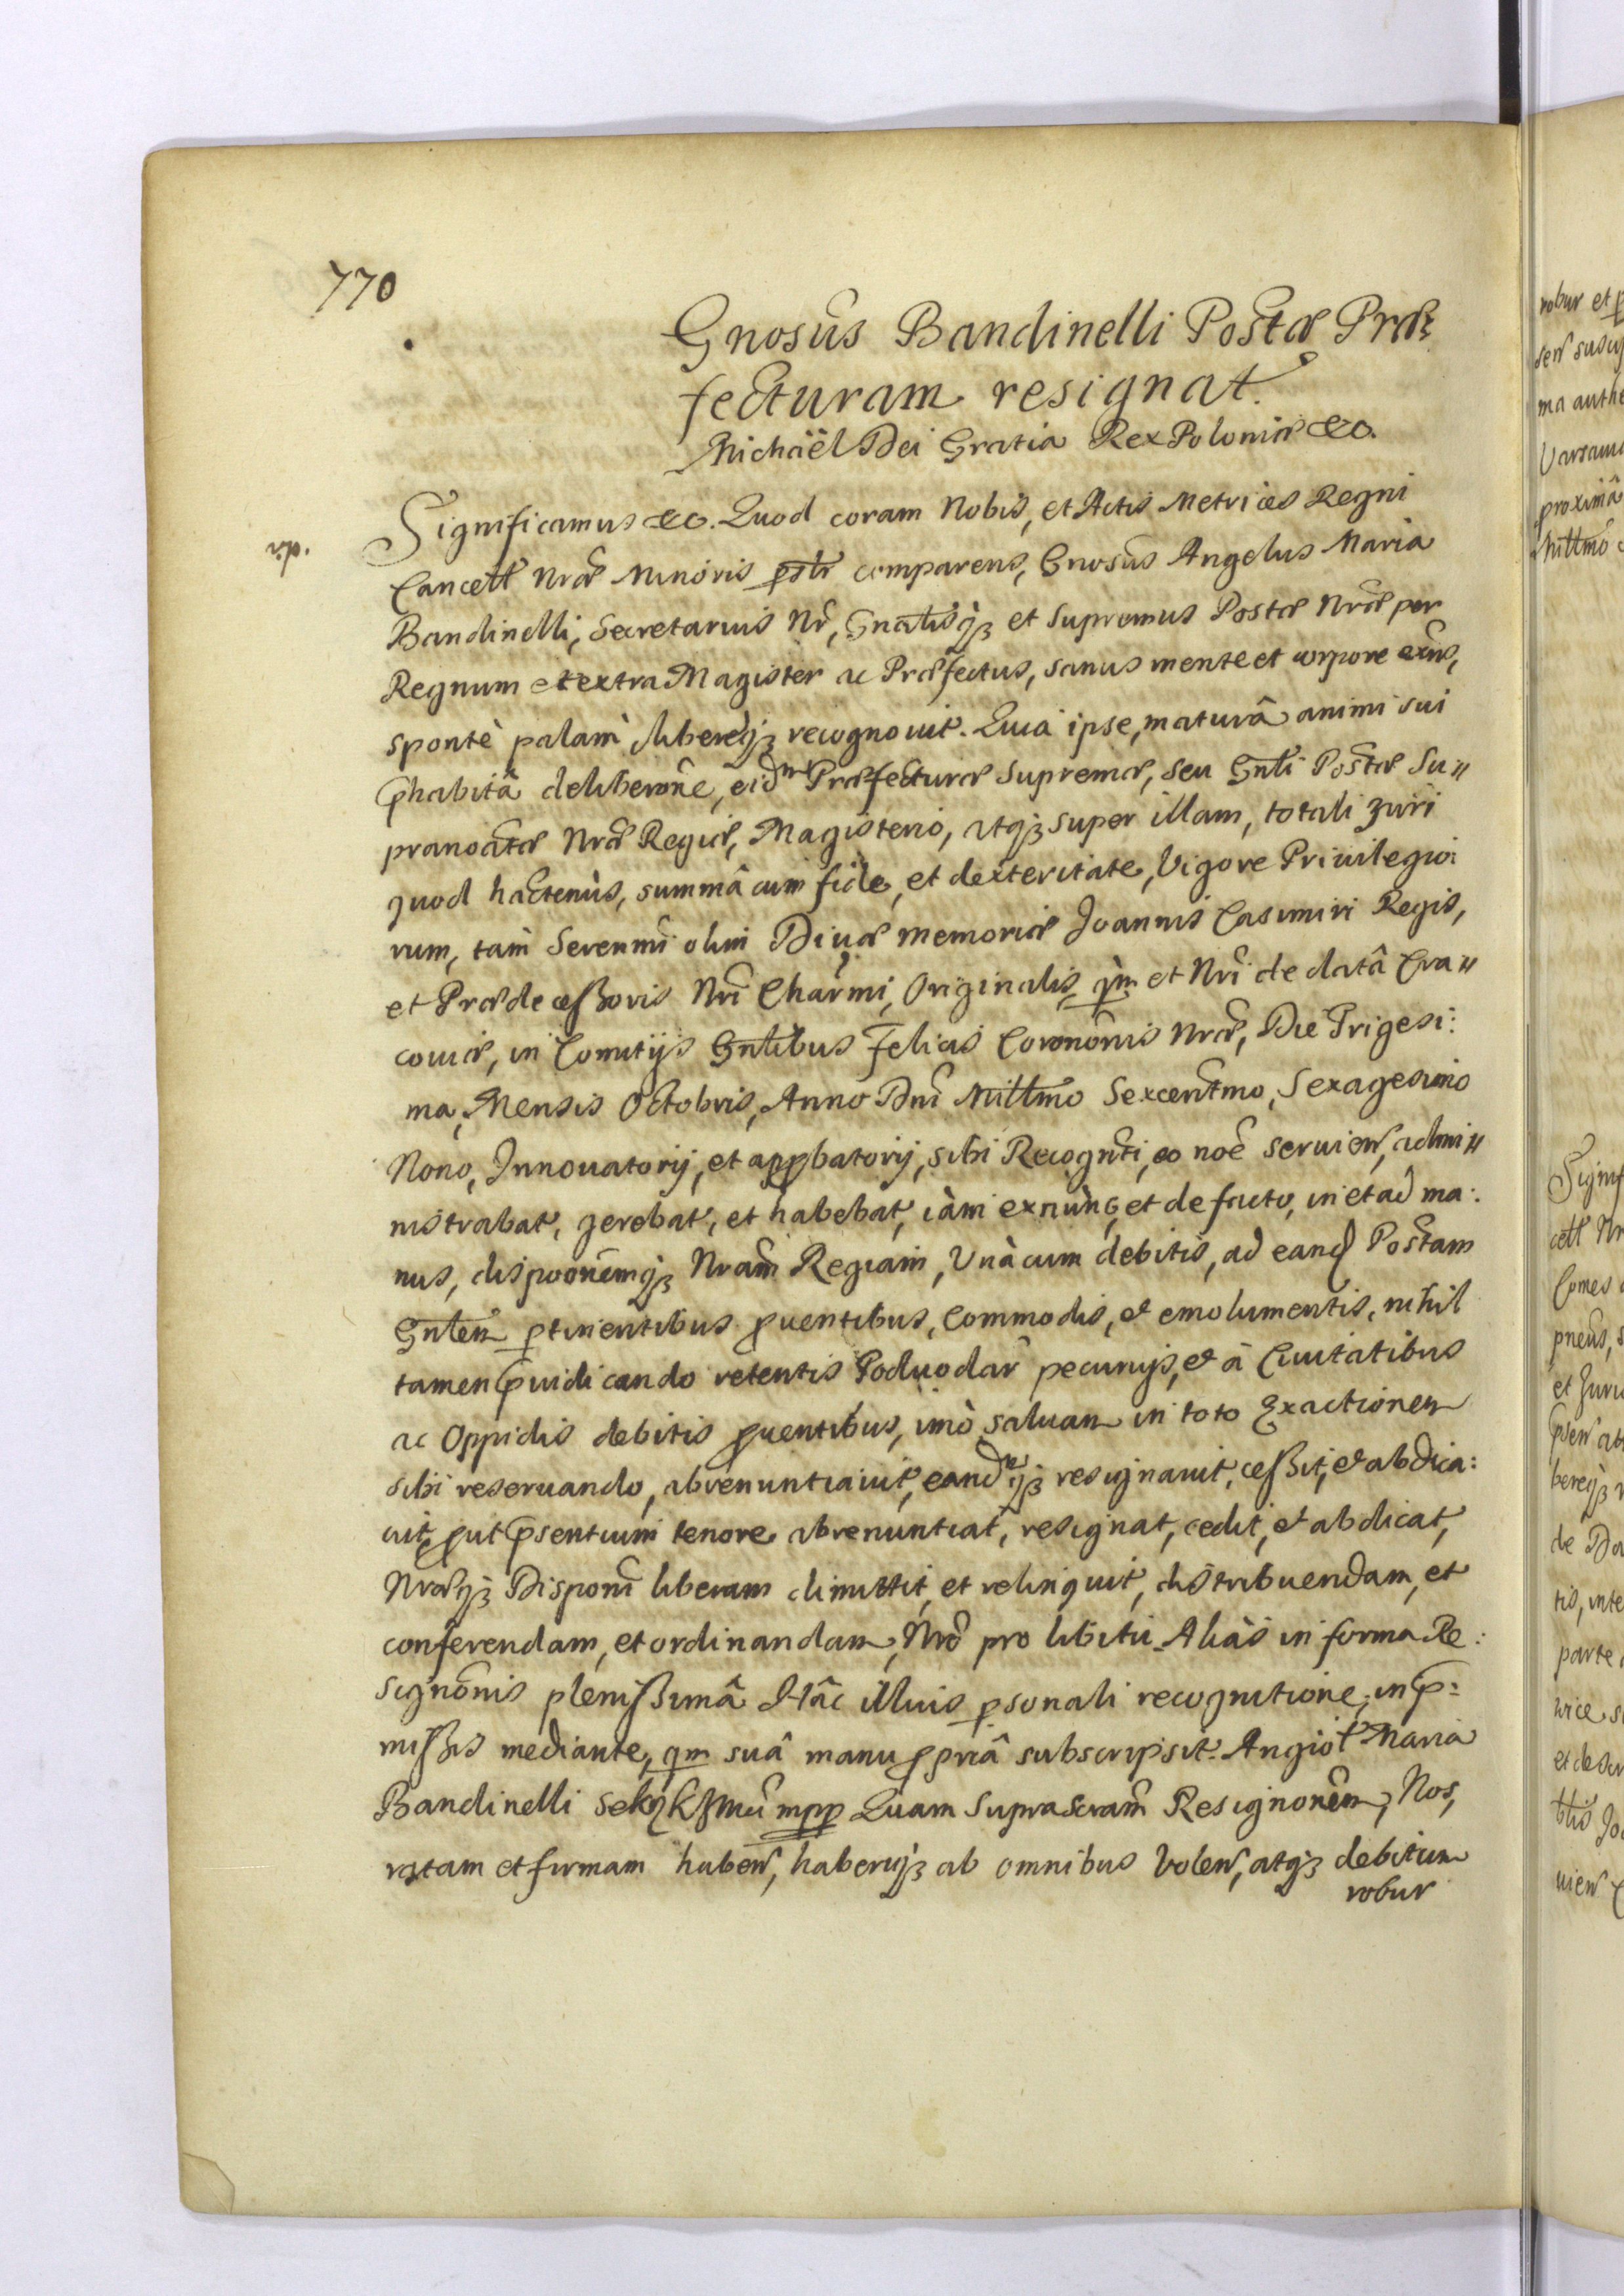 770
Gnosus Bandinelli Postæ Præ
fecturam resignat.
Michäel Dei Gratia Rex Poloniæ &c.
Significamus &c. Quod coram Nobis, et Actis Metrices Regni
Cancell Nræ Minoris psltr comparens, Gnosus Angelus Maria
Bandinelli, Secretarius Nr, Gnalisq3 et Supremus Postæ Nræ per
Regnum et extra Magister ac Præfectus, sanus mente et corpore exns,
spontè palam libereq3 recognouit. Quia ipse, maturâ animi sui
phabitâ deliberone, eidm Præfecturæ Supremæ, seu Gnli Postæ Su〃
pranoatæ Nræ Regiæ, Magisterio, atq3 super illam, totali Juri
quod hactenùs, summâ cum fide, et dexteritate, Vigore Priuilegio:
rum, tam Serenmi olim Diuæ memoriæ Joannis Casimiri Regis,
et Prædecessoris Nri Charmi, Originalis, qm et Nri de datâ Cra〃
couiæ, in Comitijs Gnlibus Felicis Coronõnis Nræ, Die Trigesi:
ma, Mensis Octobris, Anno Dni Millmo Sexcentmo, Sexagesimo
Nono, Innouatorij, et appbatorij, sibi Recognti, eo noe seruien, admi〃
nistrabat, gerebat, et habebat, iàm exnùnc, et de facto, in et ad ma:
nus, dispoonemq3 Nram Regiam, Vnà cum debitis, ad eand Postam
Gnlem ptinentibus puentibus, Commodis, et emolumentis, nihil
tamen puidicando retentis Poduodar pecunijs, et à Ciuitatibus
ac Oppidis debitis puentibus, imò saluam in toto Exactionem
sibi reseruando, abrenuntiauit, eandmq3 resignauit, cessit, et abdica:
uit, put psentium tenore abrenuntiat, resignat, cedit, et abdicat,
Nræq3 Disponi liberam dimittit, et relinquit, distribuendam, et
conferendam, et ordinandam, Nro pro libitu. Aliàs in forma Re:
signõnis plenissimâ Hâc illius psonali recognitione, in p:
missis mediante, qm suâ manu ppriâ subscripsit. Angiol Maria
Bandinelli mpp Quam Suprascram Resignonem, Nos,
ratam et firmam haben, haberiq3 ab omnibus volen, atq3 debitum
robur